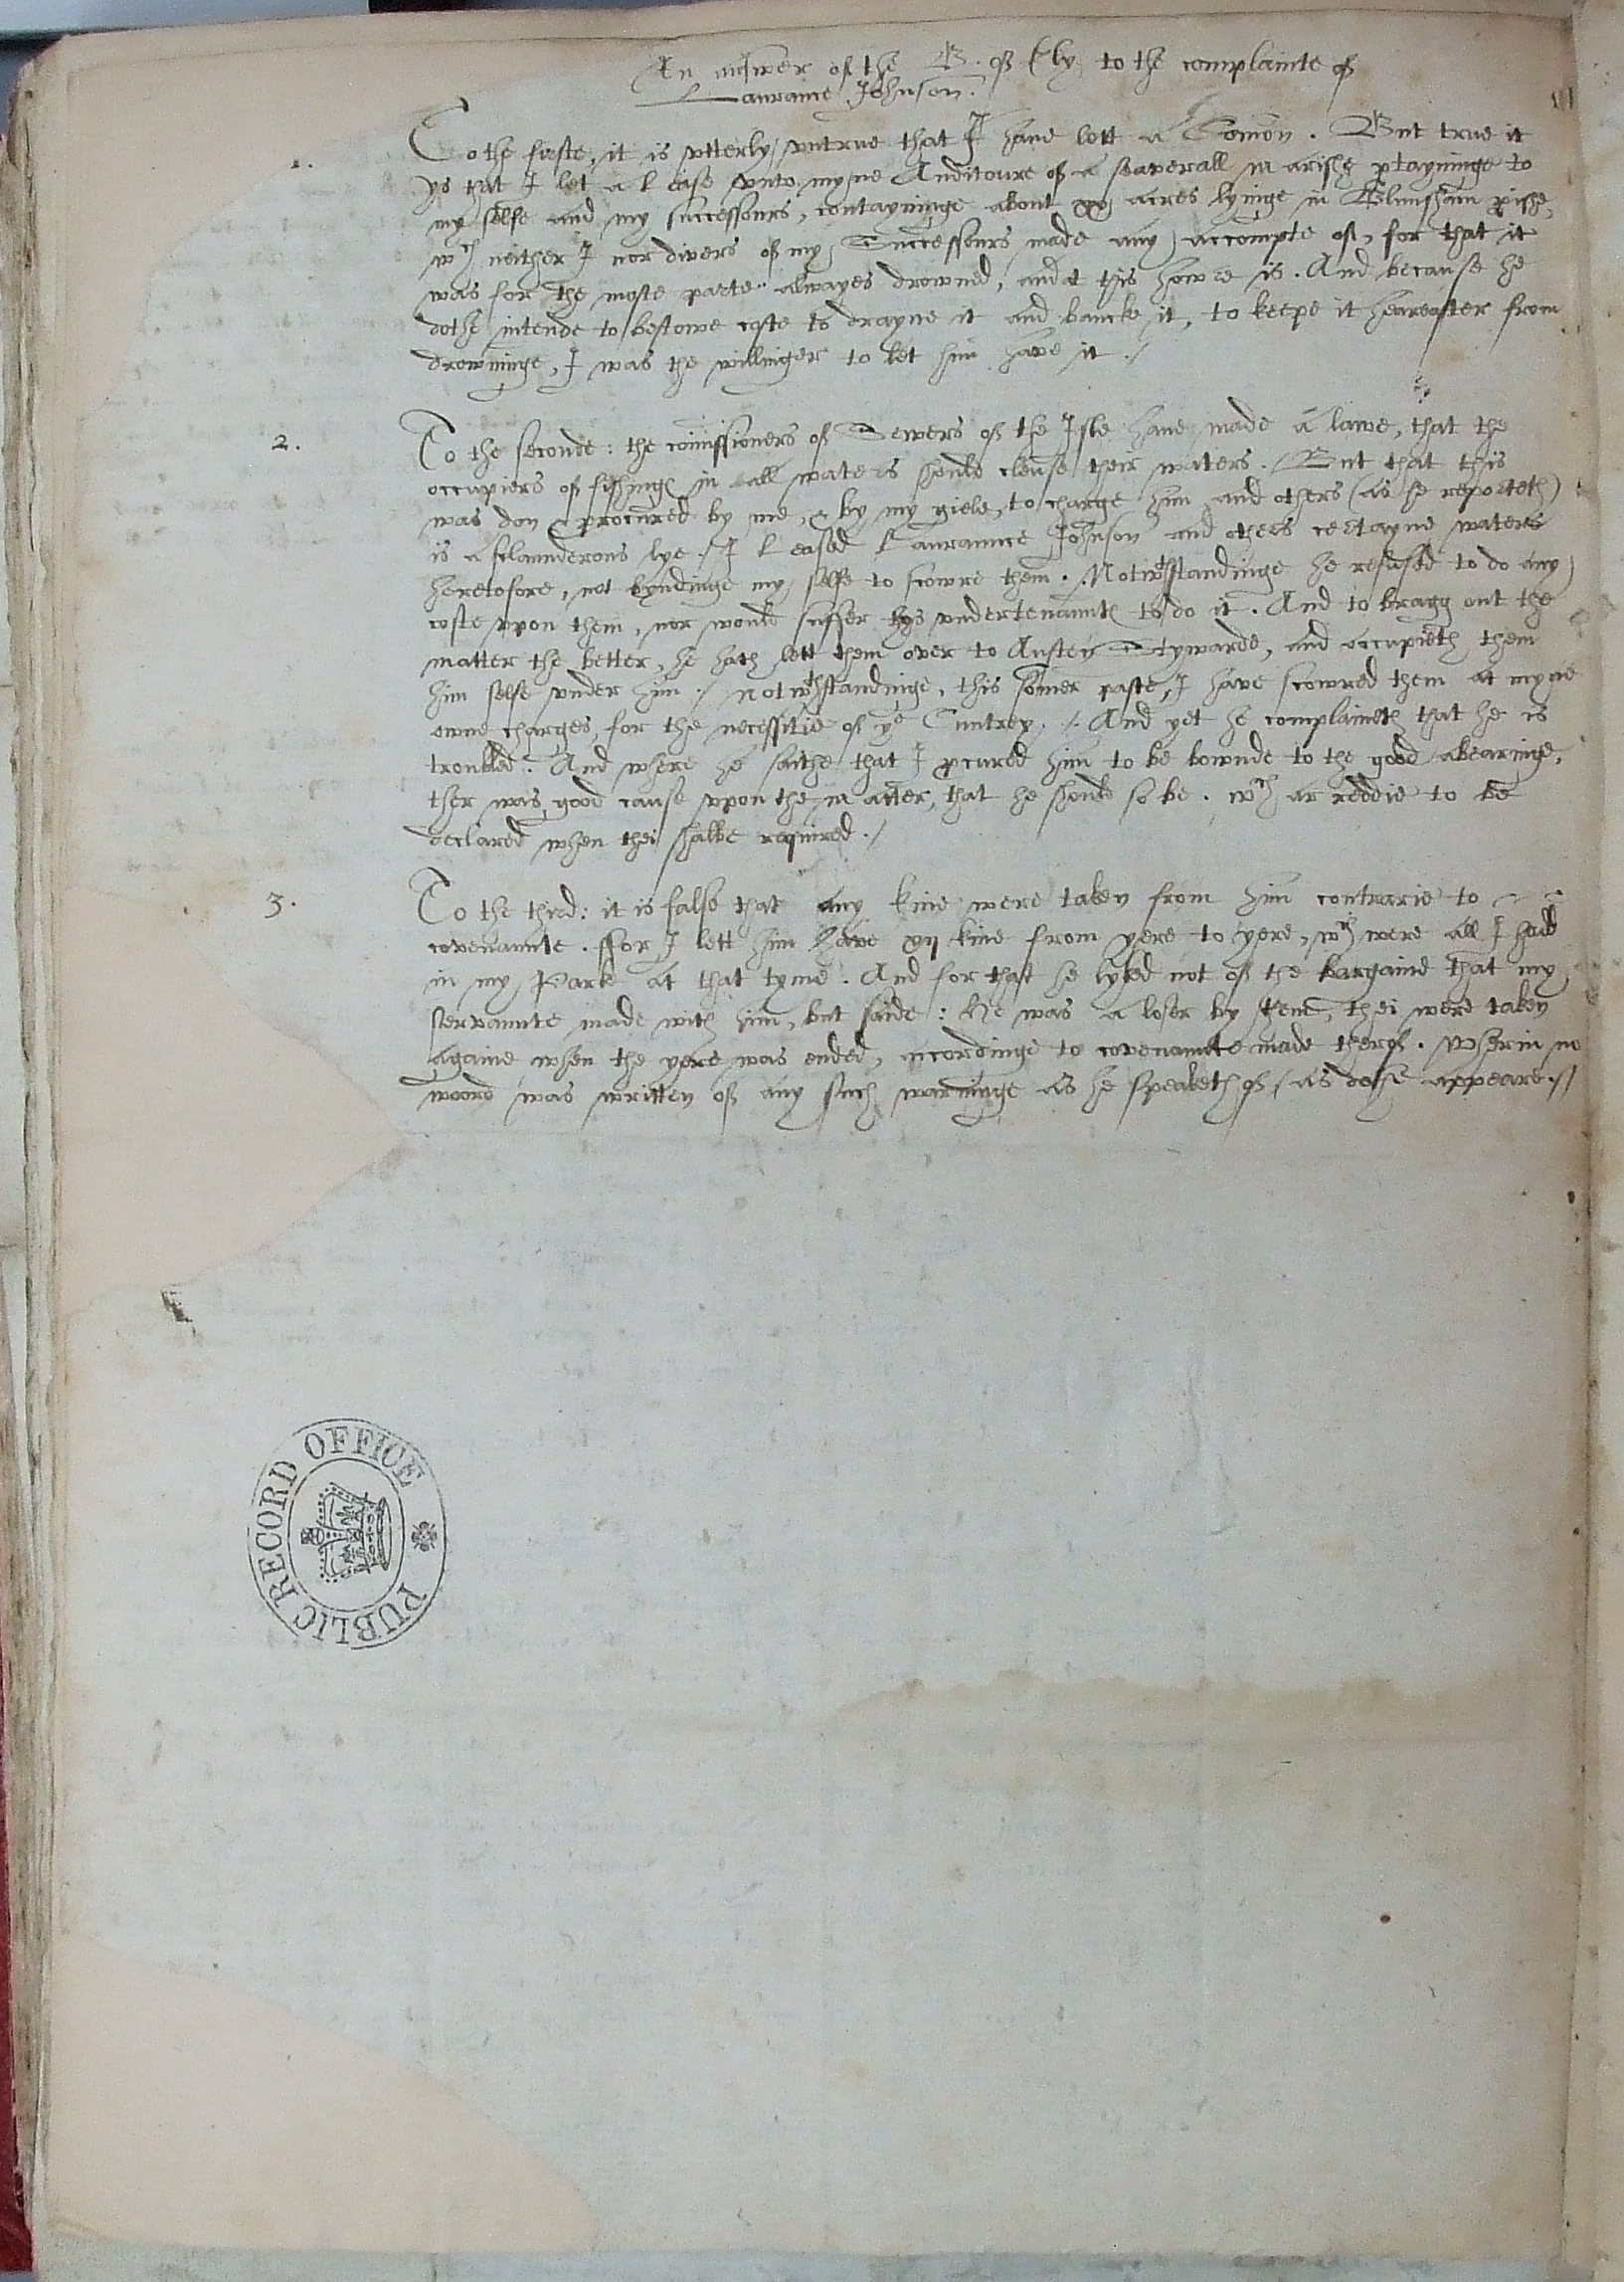 An answer of the B. of Ely to the complainte of
Laurance Johnson.
1. To the firste, it is vtterly vntrue that I haue lett a Comon. But true it
ys that I let a Lease vnto myne Auditoure of a seaverall marishe ptayninge to
my selfe and my successours, contayninge about xx acres lyinge in Blunsham pishe,
wch neither I nor divers of my Successours made any accompte of, for that it
was for the moste parte alwayes drowned, and at this howre is. And because he
dothe intende to bestowe coste to drayne it and bancke it, to keepe it heareafter from
drowninge, I was the willinger to let him have it ./
2. To the seconde: the comissioners of Sewers of the Isle haue made a lawe, that the
occupiers of fishings in all waters should clense their waters. But that this
was don & procured by me, & by my to charge him and others (as he reporteth)
is a sclaunderous lye ./ I Leased Lauraunce Johnson and others certayne waters
heretofore, not byndinge my selfe to scowre them. Notwthstandinge he refused to do any
coste vpon them, nor would suffer hys vndertenaunts to do it. And to bragg out the
matter the better, he hath lett them over to Austen Stywarde, and occupieth them
him selfe vnder him ./ Notwthstandinge, this somer paste, I have scowred them at myne
owne charges, for the necessitie of ye Cuntrey ./. And yet he complaineth that he is
troubled. And where he saithe that I pcured him to be bownde to the good abearinge,
ther was good cause vpon the matter, that he should so be. wch ar reddie to be
declared when thei shalbe required ./
3. To the third: it is false that any kine were taken from him contrarie to
covenaunte. ffor I lett him have xij kine from yere to yere, wch were all I hadd
in my Park at that tyme. And for that he lyked not of the bargaine that my
servaunte made with him, but saide: He was a loser by them, thei were taken
againe when the yere was ended, accordinge to covenaunte made therof. Wherin no
woord was written of any such warninge as he speaketh of, as dothe appeare .//
PUBLIC RECORD OFFICE